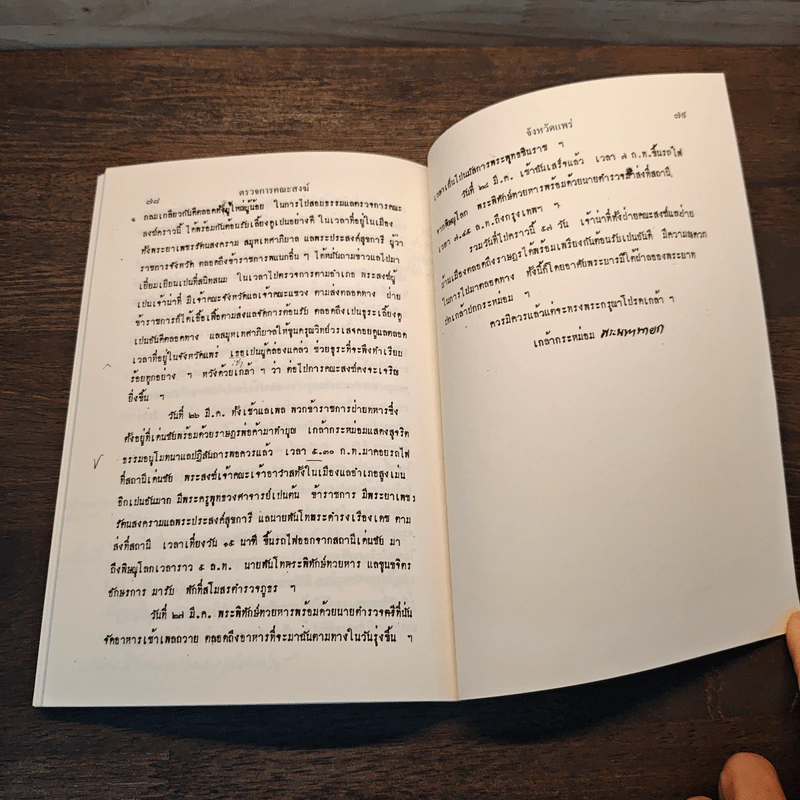 ๗๘
ตรวจการคณะสงฆ์
กลมเกลียวกันดีตลอดทั้งผู้ใหญ่ผู้น้อย ในการไปสอยธรรมแลตรวจการคณะ
สงฆ์คราวนี้ ได้พร้อมกันต้อนรับเลี้ยงดูเปนอย่างดี ในเวลาที่อยู่ในเมือง
ทั้งพระยาเพชรรัตนสงคราม สมุหเทศาภิบาล แลพระประสงค์สุขการี ผู้ว่า
ราชการจังหวัด ตลอดถึงข้าราชการพแนกอื่น ๆ ได้หมั่นถามข่าวแลไปมา
เยี่ยมเยียนเปนที่สนิทสนม ในเวลาไปตรวจการตามอำเภอ พระสงฆ์ผู้
เปนเจ้าน่าที่ มีเจ้าคณะจังหวัดแลเจ้าคณะแขวง ตามส่งตลอดทาง ฝ่าย
ข้าราชการก็ได้เอื้อเฟื้อตามส่งแลจัดการต้อนรับ ตลอดถึงเปนธุระเลี้ยงดู
เปนอันดีตลอดทาง แลสมุหเทศาภิบาลให้ขุนครุณวิทย์วรเสจคอยดูแลตลอด
เวลาที่อยู่ในจังหวัดแพร่ เธอเปนผู้คล่องแคล่ว ช่วยธุระที่จะพึงทำเรียบ
ร้อยทุกอย่าง ๆ หวังด้วยเกล้า ๆ ว่า ต่อไปการคณะสงฆ์คงจะเจริญ
ยิ่งขึ้น ฯ
วันที่ ๒๖ มี.ค. ทั้งเช้าแลเพล พวกข้าราชการฝ่ายทหารซึ่ง
ตั้งอยู่ที่เด่นชัยพร้อมด้วยราษฎรพ่อค้ามาทำบุญ เกล้ากระหม่อมแสดงสุจริต
ธรรมอนุโมทนาแลปฏิสันถารพอควรแล้ว เวลา ๕.๓๐ ก.ท.มาคอยรถไฟ
ที่สถานีเด่นชัย พระสงฆ์เจ้าคณะเจ้าอาวาสทั้งในเมืองแลอำเภอสูงเม่น
อีกเปนอันมาก มีพระครูพุทธวงศาจารย์เปนต้น ข้าราชการ มีพระยาเพชร
รัตนสงครามแลพระประสงค์สุขการี แลนายพันโทพระดำรงเรืองเดช ตาม
ส่งที่สถานี เวลาเที่ยงวัน ๑๕ นาที ขึ้นรถไฟออกจากสถานีเด่นชัย มา
ถึงพิษณุโลกเวลาราว ๕ ล.ท. นายพันโทพระพิทักษ์ทวยหาร แลขุนขจิตร
อักษรการ มารับ พักที่สโมสรตำรวจภูธร ฯ
วันที่ ๒๗ มี.ค. พระพิทักษ์ทวยหารพร้อมด้วยนายตำรวจตรีที่นั่น
จัดอาหารเช้าเพลถวาย ตลอดถึงอาหารที่จะมาฉันตามทางในวันรุ่งขึ้น ฯ
จังหวัดแพร่
๗๙
เวลาเย็นไปนมัสการพระพุทธชินราช ฯ
วันที่ ๒๘ มี.ค. เช้าฉันเสร็จแล้ว เวลา ๗ ก.ท.ขึ้นรถไฟ
จากพิษณุโลก พระพิทักษ์ทวยหารพร้อมด้วยนายตำรวจส่งที่สถานี
เวลา ๗.๔๕ ล.ท.ถึงกรุงเทพฯ ฯ
รวมวันที่ไปคราวนี้ ๕๗ วัน เจ้าน่าที่ทั้งฝ่ายคณะสงฆ์แลฝ่าย
บ้านเมืองตลอดถึงราษฎรได้พร้อมเพรียงกันต้อนรับเปนอันดี มีความสดวก
ในการไปมาตลอดทาง ทั้งนี้ก็โดยอาศัยพระบารมีใต้ฝ่าลอองพระบาท
ปกเกล้าปกกระหม่อม ฯ
ควรมิควรแล้วแต่จะทรงพระกรุณาโปรดเกล้า ฯ
เกล้ากระหม่อม